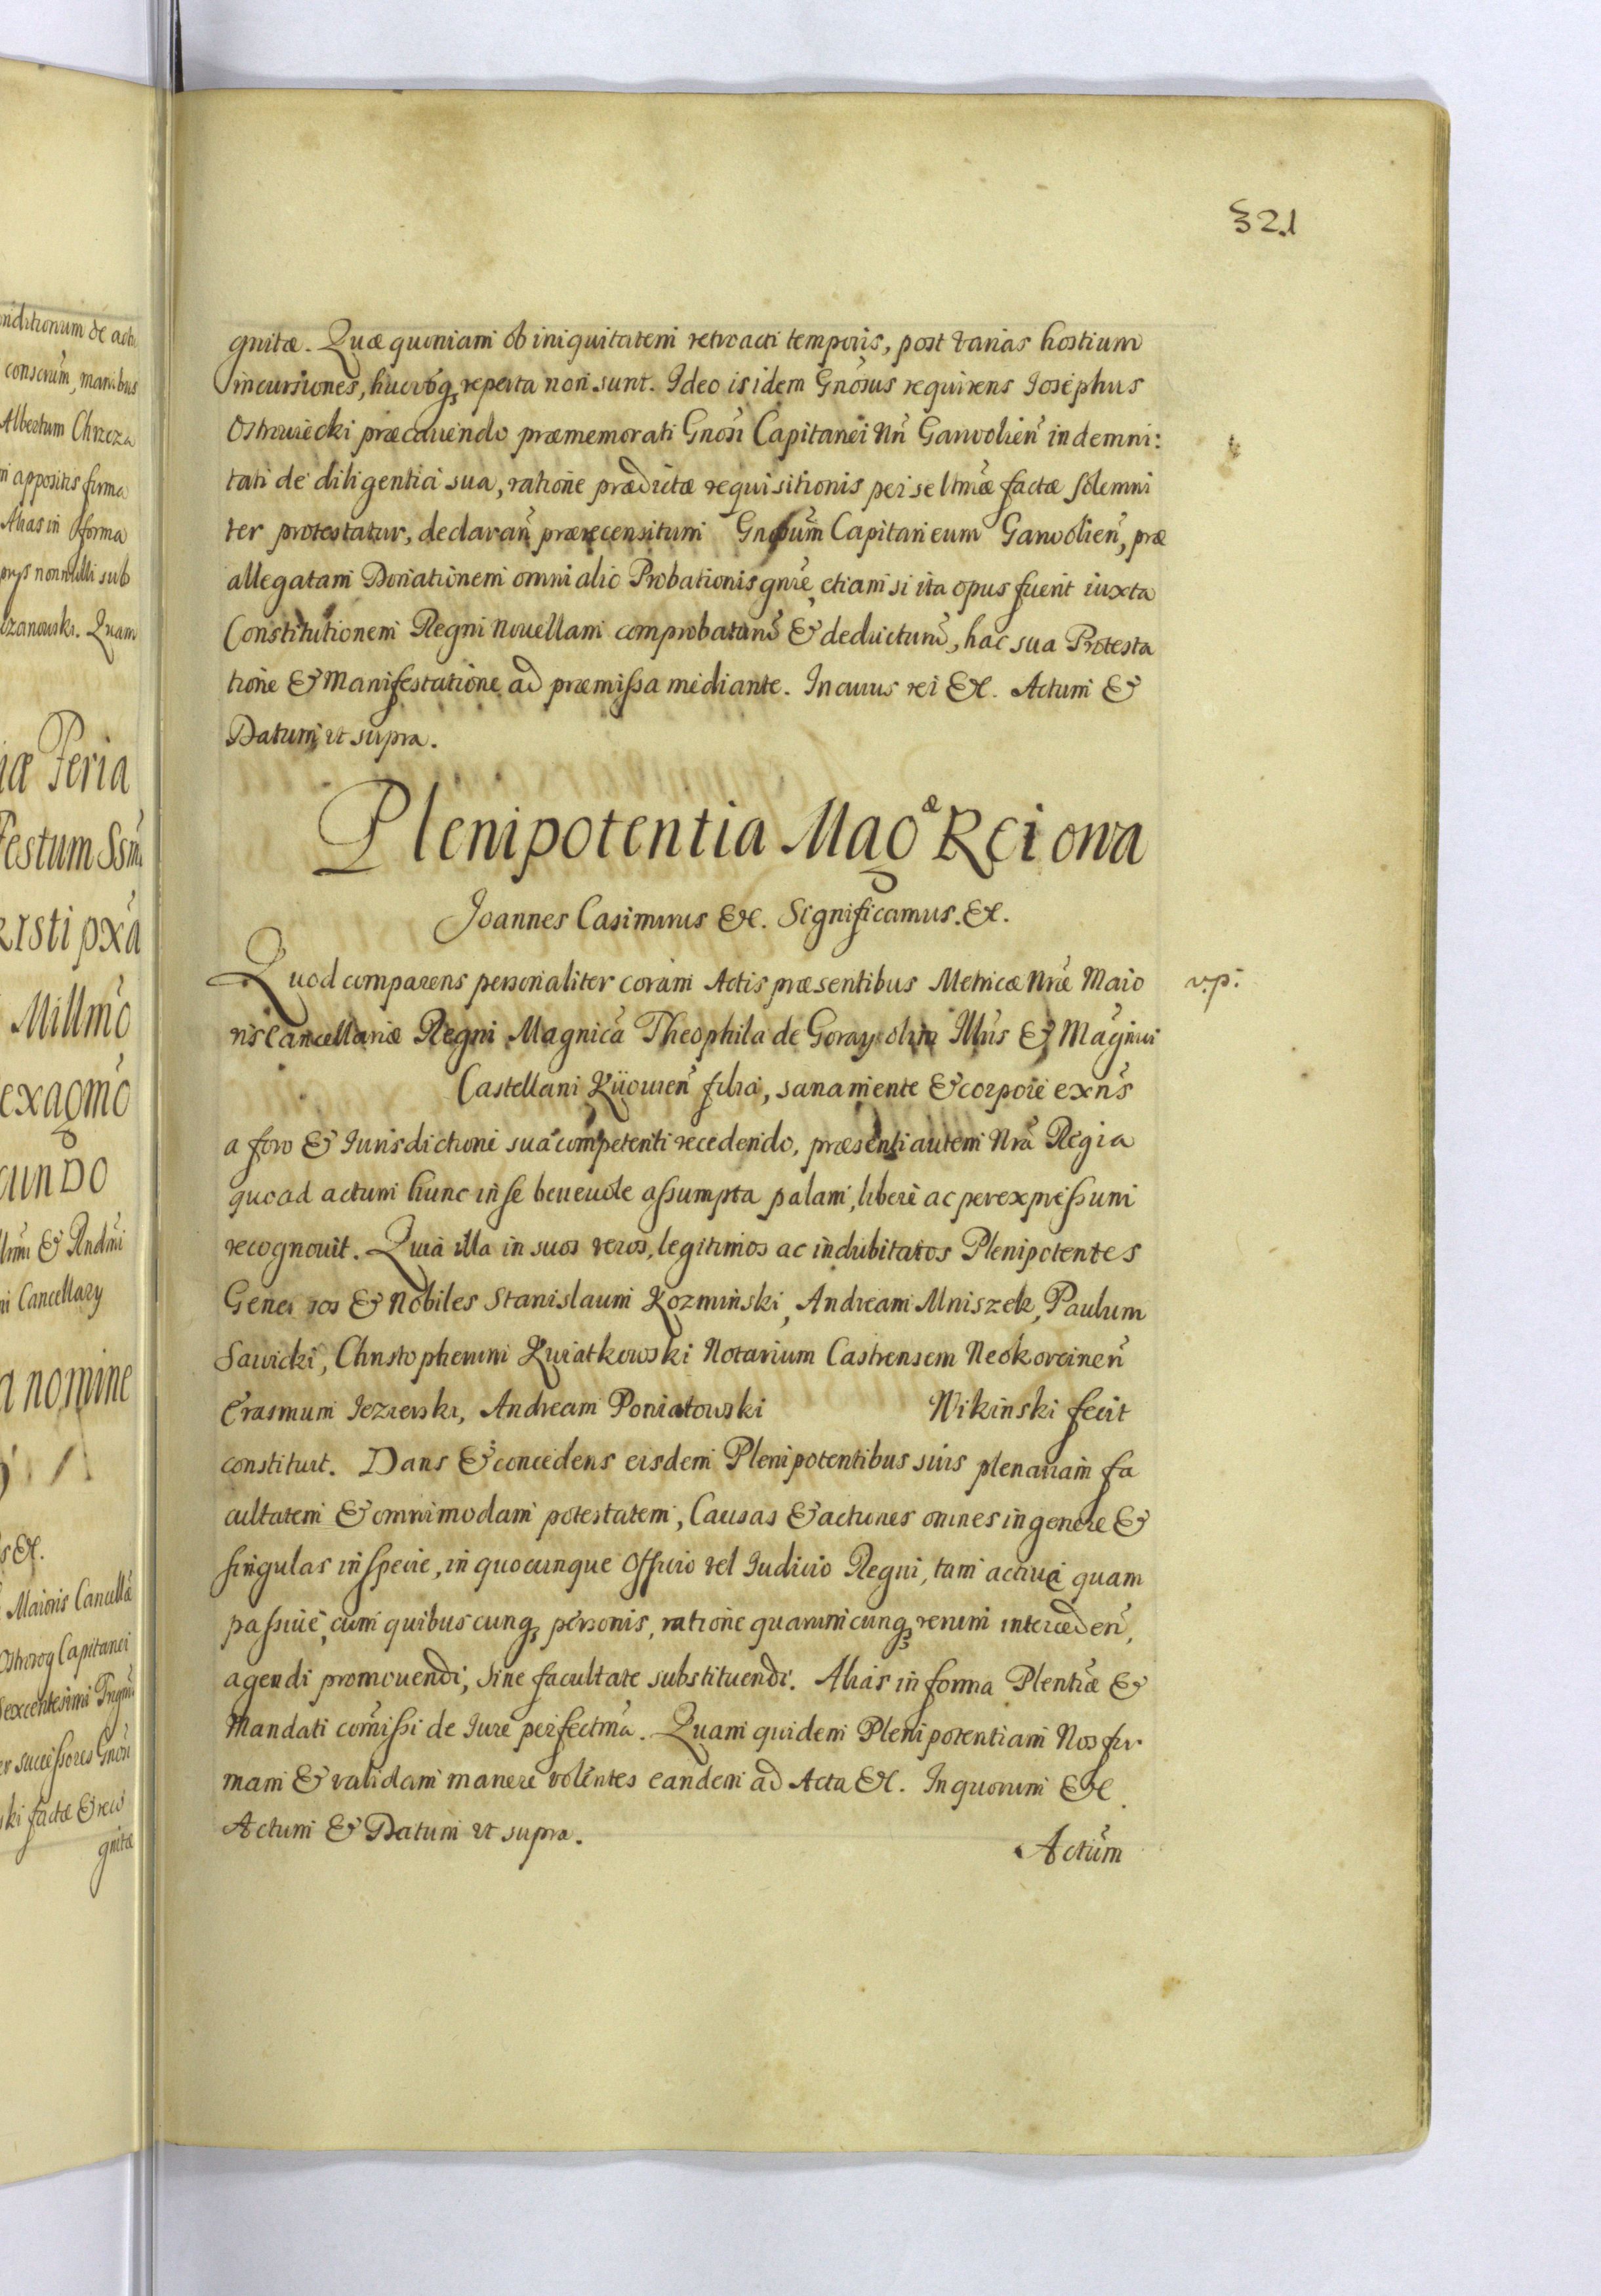 321
gnitæ. Quæ quoniam ob iniquitatem retroacti temporis, post varias hostium
incursiones, hucusq; reperta non sunt. Ideo isidem Gnosus requirens Iosephus
præcauendo præmemorati Gnosi Capitanei Nri Garwolien indemni:
tati de diligentia sua, ratione prædictæ requisitionis per se ltmæ factæ solemni
ter protestatur, declaran prærecensitum Gnosum Capitaneum Garwolien, præ
allegatam Donationem omni alio Probationis gnre, etiam si ita opus fuerit iuxta
Constitutionem Regni Nouellam comprobatum & deducturum, hac sua Protesta
tione & Manifestatione ad præmissa mediante. In cuius rei &c. Actum &
Datum ut supra.
Plenipotentia Mag Reiowa
Joannes Casimirus &c. Significamus. &c.
Quod comparens personaliter coram Actis præsentibus Metricæ Nræ Maio
ris Cancellariæ Regni Magnica Theophila de Goray olim Illris & Magnui
Castellani Kijouien filia, sana mente & corpore exns
a foro & Iurisdictioni sua competenti recedendo, præsenti autem Nra Regia
quo ad actum hunc in se beneuole assumpta palam, libere ac per expressum
recognouit. Quia illa in suos veros, legitimos ac indubitatos Plenipotentes
Generosos & Nobiles Stanislaum Kozminski, Andream Mniszek, Paulum
Sawicki, Christopherum Kwiatkowski Notarium Castrensem Neokorcinen
Erasmum Iezierski, Andream Poniatowski Wikinski fecit
constituit. Dans & concedens eisdem Plenipotentibus suis plenariam fa
cultatem & omnimodam potestatem, Causas & actiones omnes in genere &
singulas in specie, in quocunque Officio vel Iudicio Regni, tam actiue quam
passiue, cum quibuscunq; personis, ratione quarumcunq; rerum interceden,
agendi promouendi, sine facultate substituendi. Alias in forma Plentiæ &
Mandati comissi de Iure perfectma. Quam quidem Plenipotentiam Nos fir
mam & validam manere volentes eandem ad Acta &c. In quorum &c
Actum & Datum ut supra.
Actum
v.p: